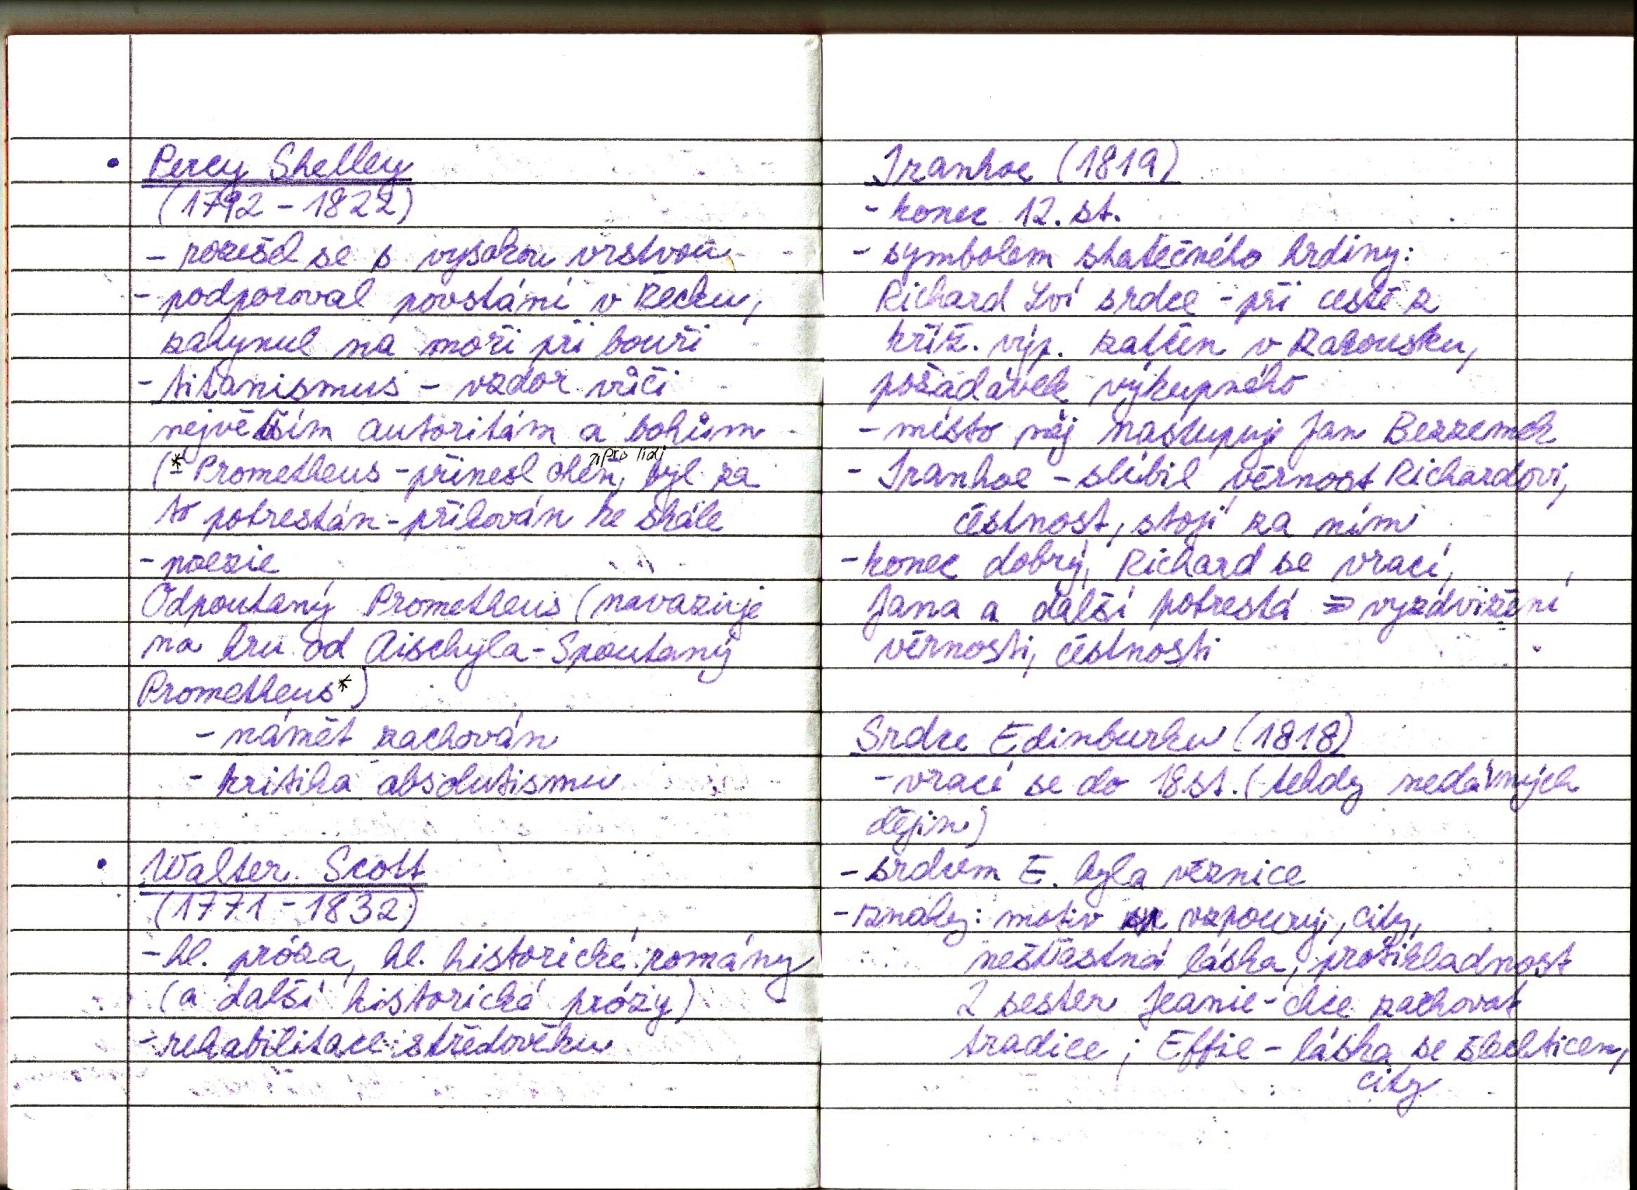 • Percy Shelley
(1792 - 1822)
- rozešel se s vysokou vrstvou
- podporoval povstání v Řecku,
zahynul na moři při bouři
- titanismus - vzdor vůči
největším autoritám a bohům
(* Prometheus - přinesl oheň, byl za
pro lidi
to potrestán - přikován ke skále
- poezie
Odpoutaný Prometheus (navazuje
na hru od Aischyla - Spoutaný
Prometheus*)
- námět zachován
- kritika absolutismu
• Walter Scott
(1771 - 1832)
- hl. próza, hl. historické romány
(a další historické prózy)
- rehabilitace středověku
Ivanhoe (1819)
- konec 12. st.
- symbolem statečného hrdiny:
Richard Lví srdce - při cestě z
kříž. výp. zatčen v Rakousku,
požadavek výkupného
- místo něj nastupuje Jan Bezzemek
- Ivanhoe - slíbil věrnost Richardovi,
čestnost, stojí za ním
- konec dobrý, Richard se vrací,
Jana a další potrestá => vyzdvižení
věrnosti, čestnosti
Srdce Edinburku (1818)
- vrací se do 18. st. (tehdy nedávných
dějin)
- srdcem E. byla věznice
- znaky: motiv vzpoury, city,
nešťastná láska, protikladnost
2 sester Jeanie - chce zachovat
tradice; Effie - láska se šlechticem,
city